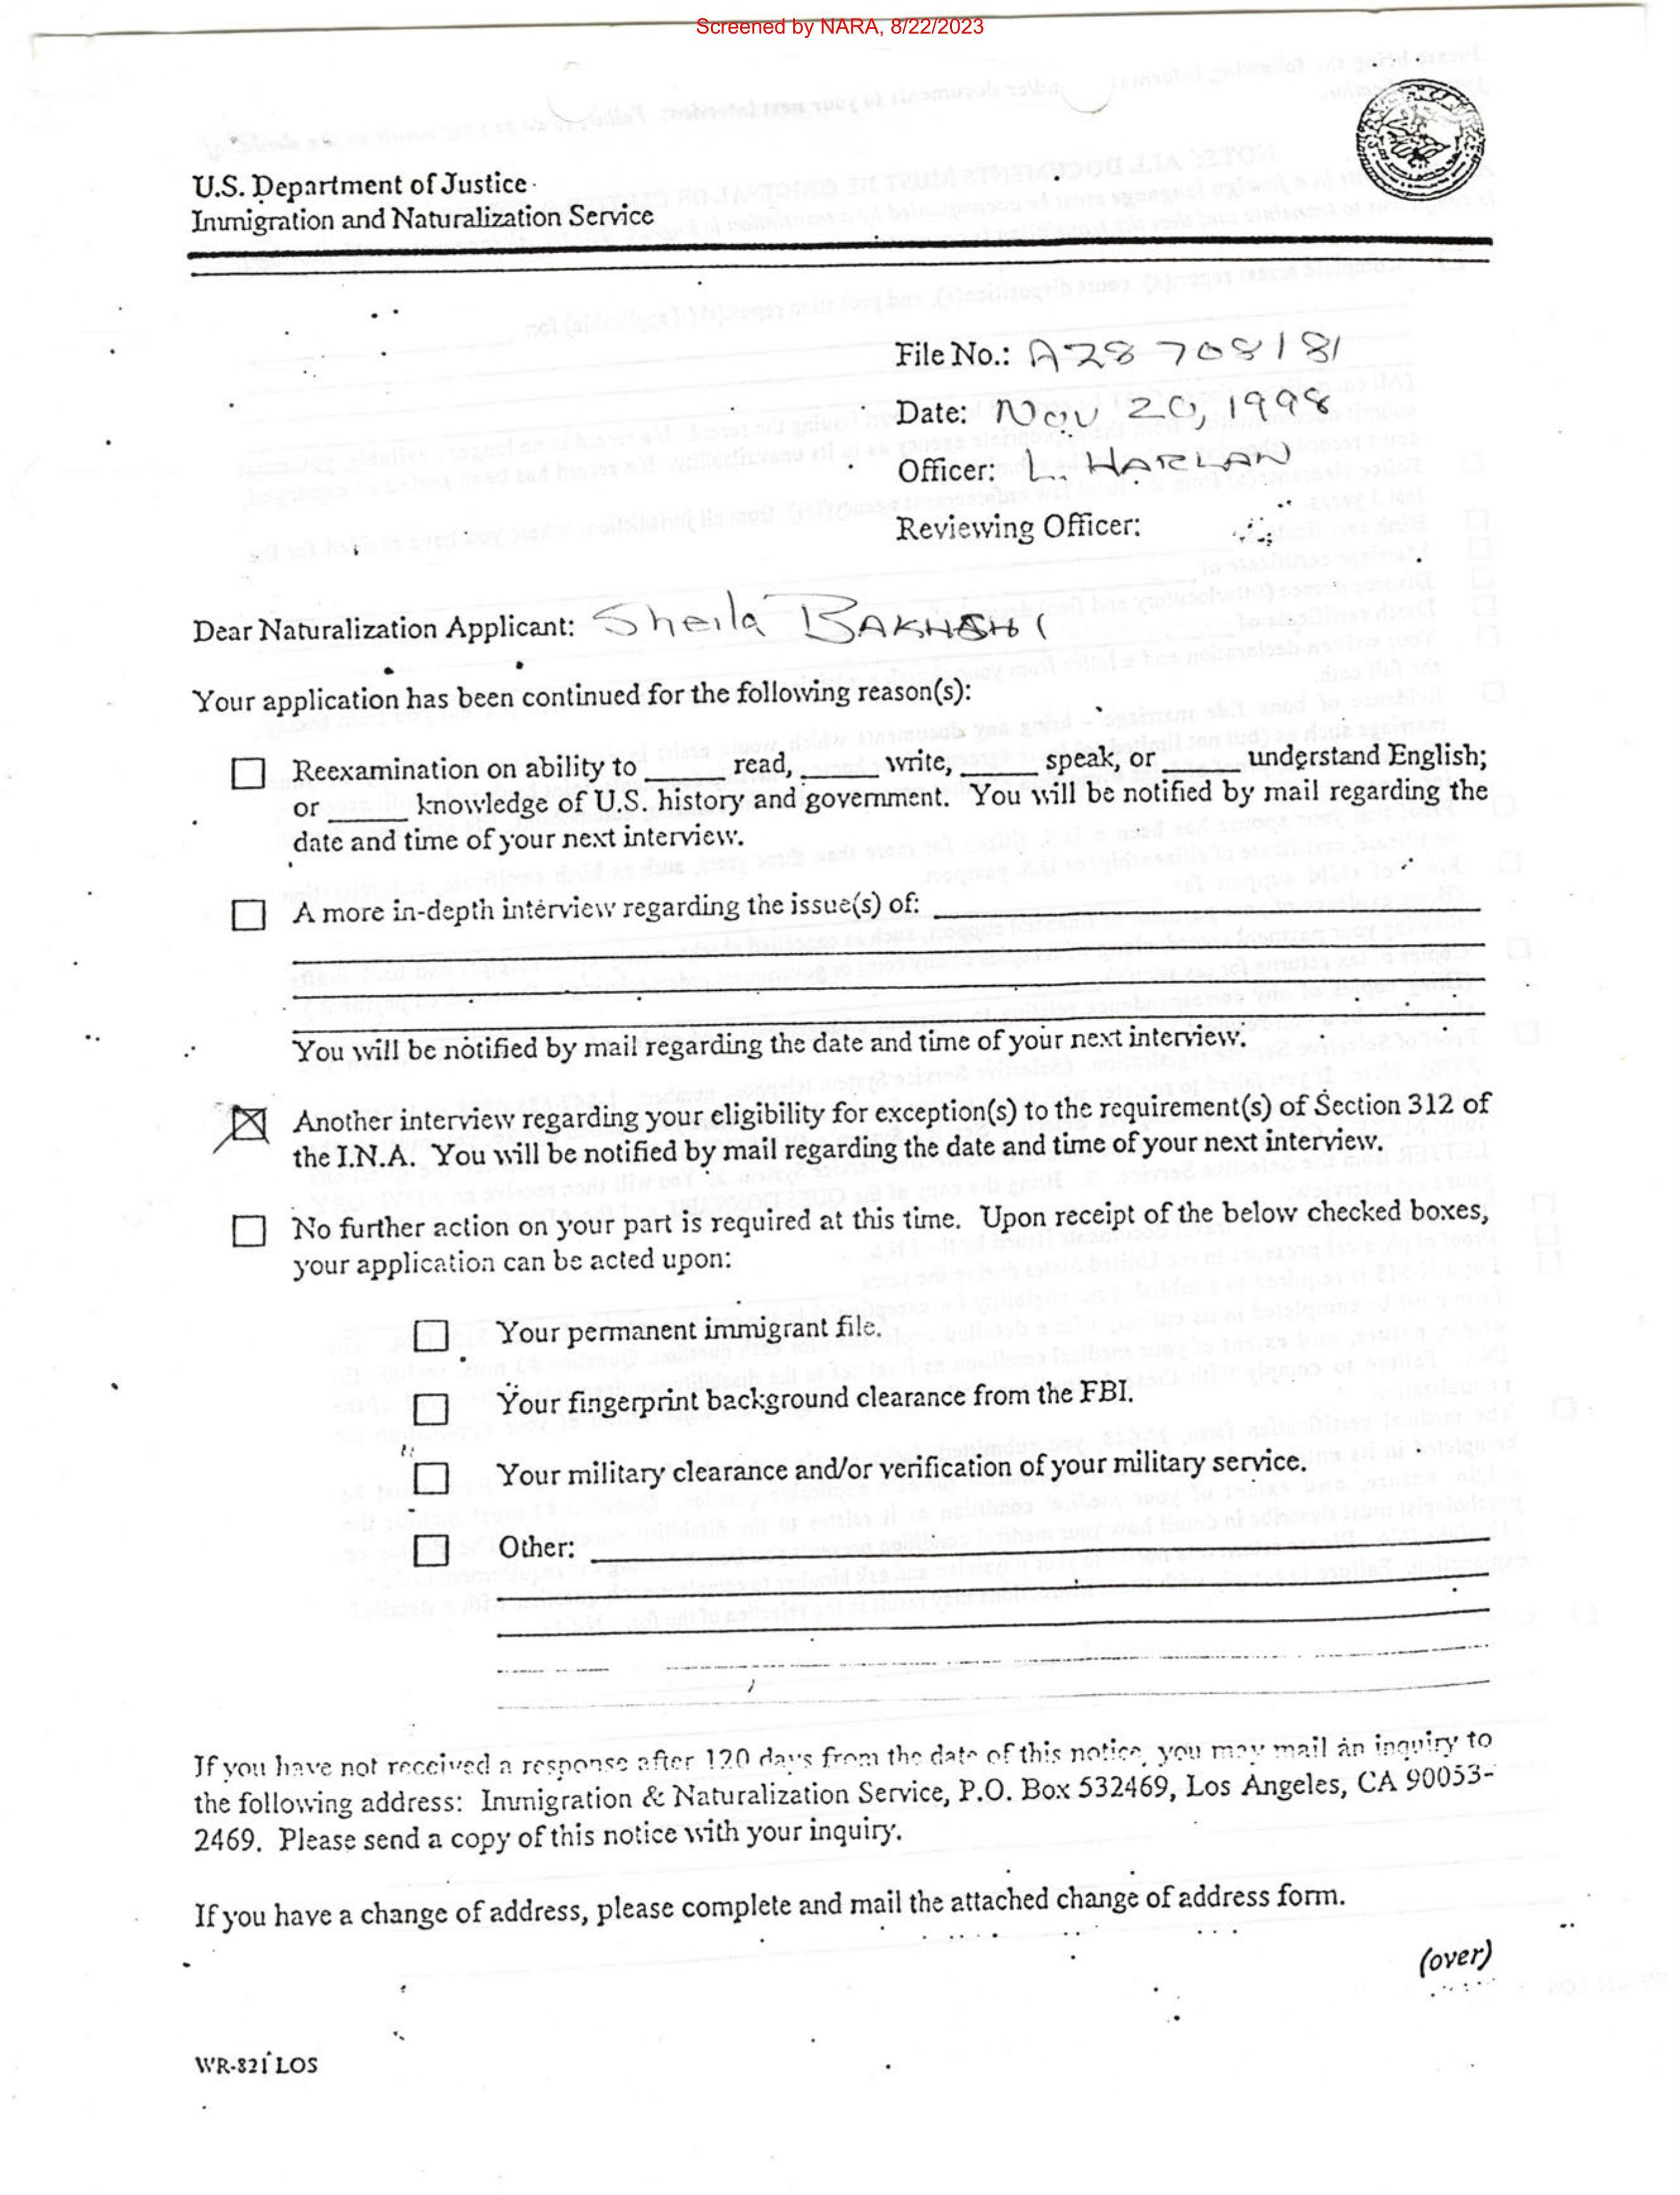 Screened by NARA, 8/22/2023
U.S. Department of Justice
Immigration and Naturalization Service
File No.: A28 708181
Date: Nov 20, 1998
Officer: L. HARLAN
Reviewing Officer:
Dear Naturalization Applicant: Sheila BAKHSHI
Your application has been continued for the following reason(s):
Reexamination on ability to _____ read, _____ write, _____ speak, or _____ understand English;
or _____ knowledge of U.S. history and government. You will be notified by mail regarding the
date and time of your next interview.
A more in-depth interview regarding the issue(s) of:
You will be notified by mail regarding the date and time of your next interview.
Another interview regarding your eligibility for exception(s) to the requirement(s) of Section 312 of
the I.N.A. You will be notified by mail regarding the date and time of your next interview.
No further action on your part is required at this time. Upon receipt of the below checked boxes,
your application can be acted upon:
Your permanent immigrant file.
Your fingerprint background clearance from the FBI.
Your military clearance and/or verification of your military service.
Other:
If you have not received a response after 120 days from the date of this notice, you may mail an inquiry to
the following address: Immigration & Naturalization Service, P.O. Box 532469, Los Angeles, CA 90053-
2469. Please send a copy of this notice with your inquiry.
If you have a change of address, please complete and mail the attached change of address form.
(over)
WR-821 LOS